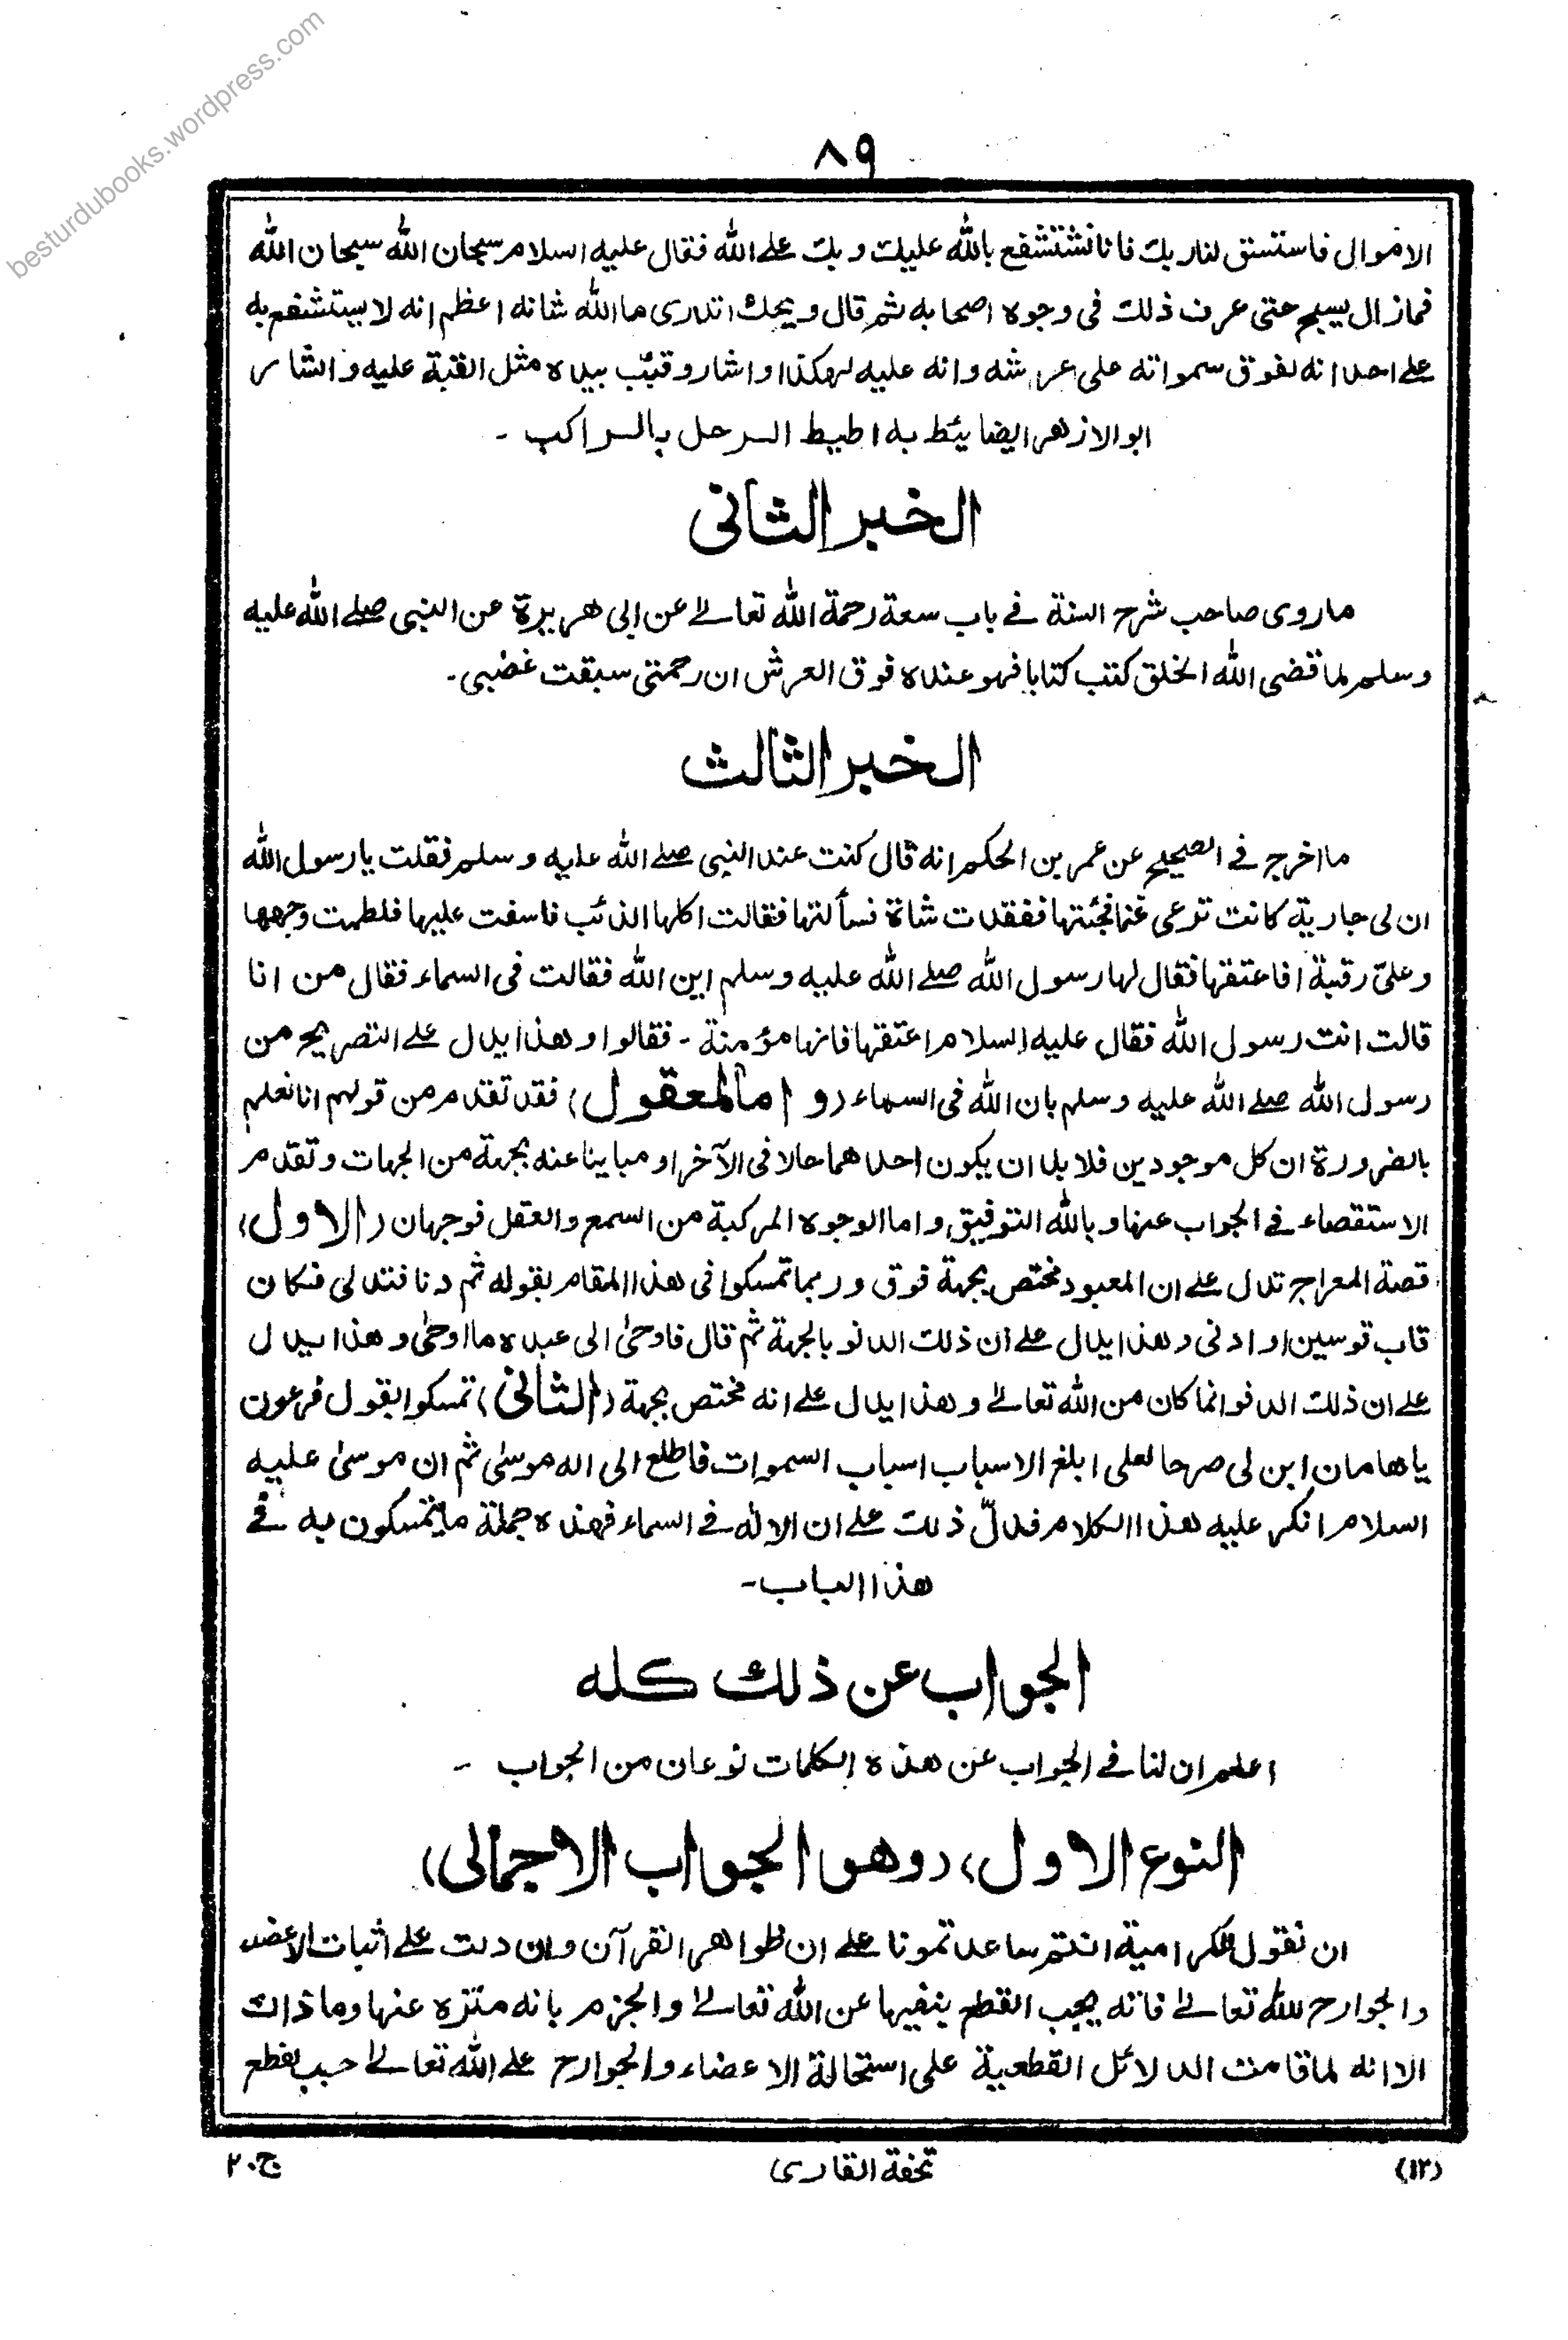 besturdubooks.wordpress.com
٨٩
الاموال فاستسق لنا ربك فانا نشتشفع بالله عليك وبك على الله فقال عليه السلام سبحان الله سبحان الله
فمازال يسبح حتى عرف ذلك فى وجوه اصحابه ثم قال ويحك اتدرى ما الله شانه اعظم انه لا يستشفع به
على احد انه لفوق سمواته على عرشه وانه عليه لهكذا واشار وقبّب بيده مثل القبة عليه واشار
ابو الازهر ايضا يئط به اطيط الرحل بالراكب ـ
الخبر الثانى
ماروى صاحب شرح السنة فى باب سعة رحمة الله تعالى عن ابى هريرة عن النبى صلے الله عليه
وسلم لما قضى الله الخلق كتب كتابا فهو عنده فوق العرش ان رحمتى سبقت غضبى ـ
الخبر الثالث
ما اخرج فى الصحيح عن عمر بن الحكم انه قال كنت عند النبى صلے الله عليه وسلم فقلت يا رسول الله
ان لى جارية كانت ترعى غنما فجئتها ففقدت شاة فسألتها فقالت اكلها الذئب فاسفت عليها فلطمت وجهها
وعلىّ رقبة افاعتقها فقال لها رسول الله صلے الله عليه وسلم اين الله فقالت فى السماء فقال من انا
قالت انت رسول الله فقال عليه السلام اعتقها فانها مؤمنة ـ فقالوا وهذا يدل على التصريح من
رسول الله صلے الله عليه وسلم بان الله فى السماء (واما المعقول) فقد تقدم من قولهم انا نعلم
بالضرورة ان كل موجودين فلا بد ان يكون احدهما حالا فى الآخر او مباينا عنه بجهة من الجهات وتقدم
الاستقصاء فى الجواب عنها وبالله التوفيق واما الوجوه المركبة من السمع والعقل فوجهان (الاول)
قصة المعراج تدل على ان المعبود مختص بجهة فوق وربما تمسكوا فى هذا المقام بقوله ثم دنا فتدلى فكان
قاب قوسين او ادنى وهذا يدل على ان ذلك الدنو بالجهة ثم قال فاوحىٰ الى عبده ما اوحىٰ وهذا يدل
على ان ذلك الدنو انما كان من الله تعالى وهذا يدل على انه مختص بجهة (الثانى) تمسكوا بقول فرعون
يا هامان ابن لى صرحا لعلى ابلغ الاسباب اسباب السموات فاطلع الى اله موسىٰ ثم ان موسىٰ عليه
السلام انكر عليه هذا الكلام فدلّ ذلك على ان الاله فى السماء فهذه جملة ما يتمسكون به فى
هذا الباب ـ
الجواب عن ذلك كله
اعلم ان لنا فى الجواب عن هذه الكلمات نوعان من الجواب ـ
النوع الاول، (وهو الجواب الاجمالى)
ان نقول للكرامية انتم ساعدتمونا على ان ظواهر القرآن وان دلت على اثبات الاعضاء
والجوارح لله تعالى فانه يجب القطع بنفيها عن الله تعالى والجزم بانه منزه عنها وما ذاك
الا انه لما قامت الدلائل القطعية على استحالة الاعضاء والجوارح على الله تعالى
(١٢)
تحفة القارى
ج٠٢٠